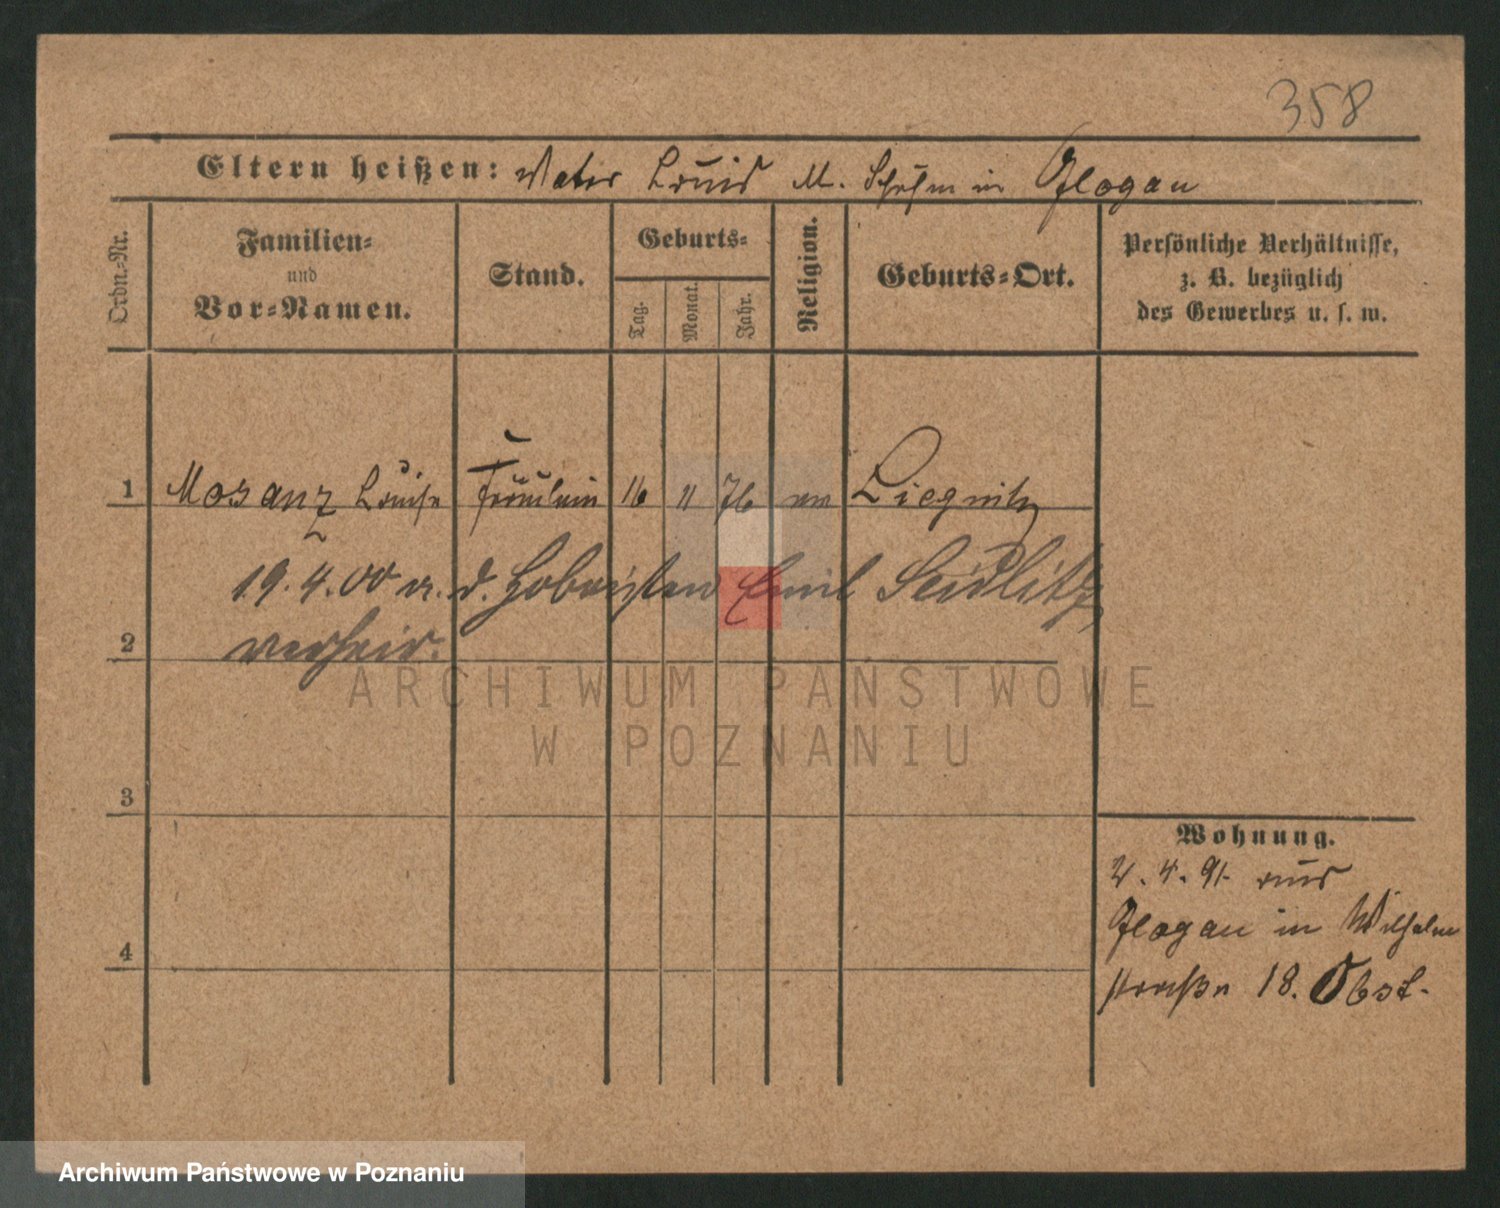 358
Eltern heißen: Vater Louis M. Schuhm in Glogau
Ordn.-Nr.
Familien-
und
Vor-Namen.
Stand.
Geburts-
Tag.
Monat.
Jahr.
Religion.
Geburts-Ort.
Persönliche Verhältnisse,
z. B. bezüglich
des Gewerbes u. s. w.
1 Mosanz Louise Fräulein 16 11 76 ev Liegnitz
19.4.00 m. d. Hoboisten Emil Seidlitz
2 verheir.
ARCHIWUM PAŃSTWOWE
W POZNANIU
3
Wohnung.
2. 4. 91. aus
Glogau in Wilhelm
straße 18.
4
Archiwum Państwowe w Poznaniu